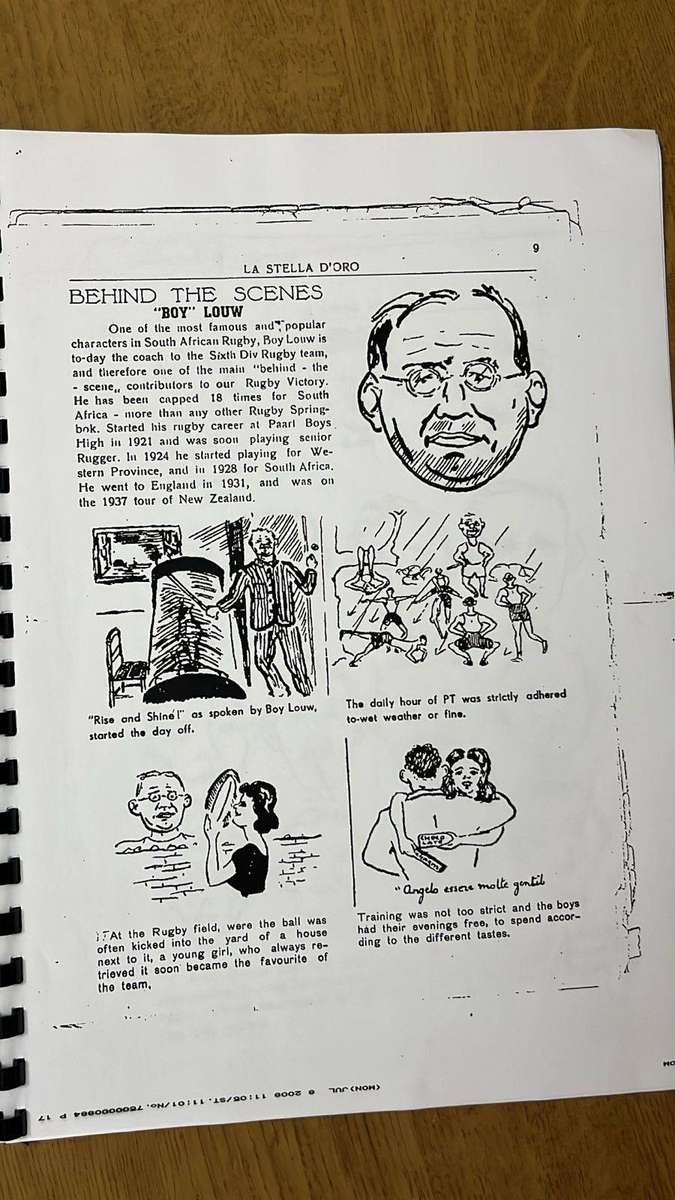 9
LA STELLA D'ORO
BEHIND THE SCENES
"BOY" LOUW
One of the most famous and popular
characters in South African Rugby, Boy Louw is
to-day the coach to the Sixth Div Rugby team,
and therefore one of the main "behind - the
- scene„ contributors to our Rugby Victory.
He has been capped 18 times for South
Africa - more than any other Rugby Spring-
bok. Started his rugby career at Paarl Boys
High in 1921 and was soon playing senior
Rugger. In 1924 he started playing for We-
stern Province, and in 1928 for South Africa.
He went to England in 1931, and was on
the 1937 tour of New Zealand.
"Rise and Shine!" as spoken by Boy Louw,
started the day off.
The daily hour of PT was strictly adhered
to-wet weather or fine.
CHOCO
LATE
"Angelo essere molte gentil
At the Rugby field, were the ball was
often kicked into the yard of a house
next to it, a young girl, who always re-
trieved it soon became the favourite of
the team,
Training was not too strict and the boys
had their evenings free, to spend accor-
ding to the different tastes.
(MON)JUL 6 2009 11:05/ST. 11:01/No. 7500000884 P 17